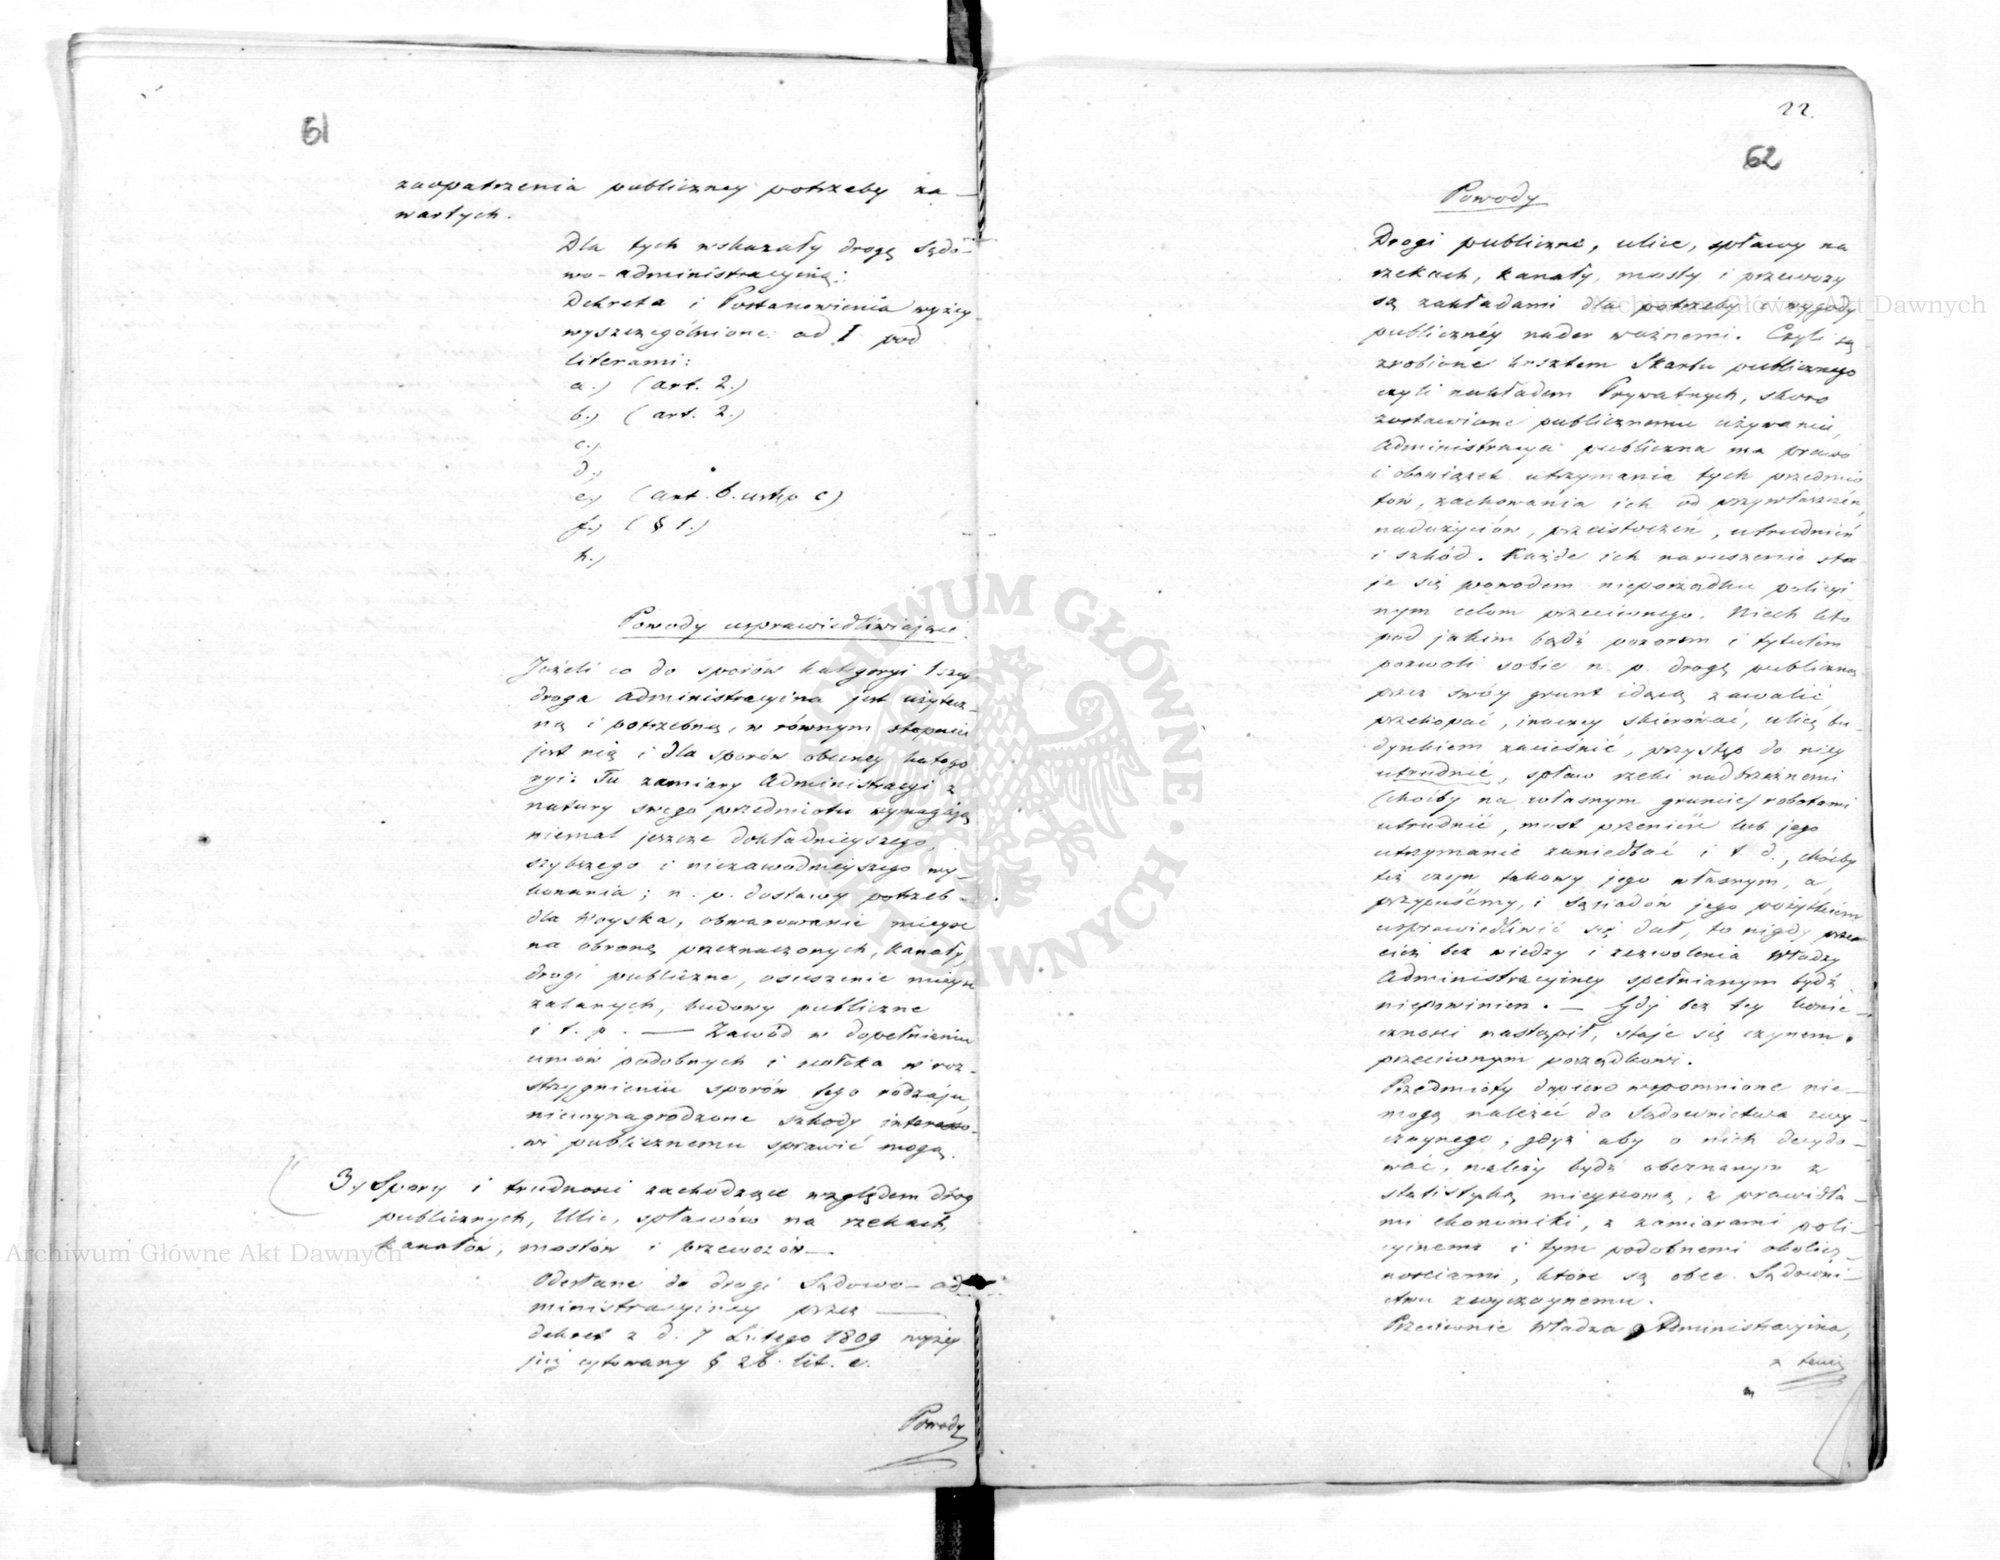 61
zaopatrzenia publiczney potrzeby za-
wartych.
Dla tych wskazały drogę Sądo-
wo-administracyiną:
Dekreta i Postanowienia wyżey
wyszczególnione: ad I. pod
literami:
a.) (art. 2.)
b.) (art. 2.)
c.)
d.)
e.) (art. 6. ustęp c)
f.) (§ 1.)
h.)
Powody usprawiedliwiaiące.
Jeżeli co do sporów kategoryi 1szey
droga administracyina jest użytecz-
ną i potrzebną, w równym stopniu
jest nią i dla sporów obecney katego
ryi: Tu zamiary Administracyi z
natury swego przedmiotu wymagają
niemal jeszcze dokładnieyszego,
szybszego i niezawodnieyszego wy-
konania; n. p. dostawy potrzeb
dla Woyska, obwarowanie mieysc
na obronę przeznaczonych, kanały,
drogi publiczne, osuszenie mieysc
zalanych, budowy publiczne
i t. p. — Zawód w dopełnieniu
umów podobnych i zwłoka w roz-
strzygnieniu sporów tego rodzaju,
niewynagrodzone szkody interesso-
wi publicznemu sprawić mogą.
3.) Spory i trudności zachodzące względem dróg
publicznych, Ulic, spławów na rzekach,
kanałów, mostów i przewozów—
Odesłane do drogi Sądowo-ad
ministracyiney przez —
dekret z d. 7 Lutego 1809 wyżey
już cytowany § 26. lit. e.
Powody
22.
62
Powody
Drogi publiczne, ulice, spławy na
rzekach, kanały, mosty i przewozy
są zakładami dla potrzeby i wygody
publicznéy nader ważnemi. Czyli są
zrobione kosztem Skarbu publicznego
czyli nakładem Prywatnych, skoro
zostawione publicznemu używaniu,
Administracya publiczna ma prawo
i obowiązek utrzymania tych przedmio
tów, zachowania ich od przywłaszczeń,
nadużyciów, przeistoczeń, utrudnień
i szkód. Każde ich naruszenie sta-
je się powodem nieporządku policyi
nym celom przeciwnego. Niech kto
pod jakim bądź pozorem i tytułem
pozwoli sobie n. p. drogę publiczną
przez swóy grunt idącą zawalić,
przekopać, inaczey skierować, ulicę bu-
dynkiem zacieśnić, przystęp do niey
utrudnić, spław rzeki nadbrzeżnemi
(choćby na własnym gruncie) robotami
utrudnić, most przenieść lub jego
utrzymanie zaniedbać i t. d., choćby
też czyn takowy jego własnym, a,
przypuśćmy, i sąsiadów jego pożytkiem
usprawiedliwić się dał, to nigdy prze-
cież bez wiedzy i zezwolenia Władzy
Administracyiney spełnianym bydź
niepowinien. — Gdy bez tey konie-
czności nastąpił, staje się czynem
przeciwnym porządkowi.
Przedmioty dopiero wspomnione nie-
mogą należéć do Sądownictwa zwy-
czaynego; gdyż aby o nich decydo-
wać, należy bydź obeznanym z
statistyką mieyscową, z prawidła-
mi ekonomiki, z zamiarami poli-
cyinemi i tym podobnemi okolicz-
nościami, które są obce Sądowni-
ctwu zwyczaynemu.
Przeciwnie Władza Administracyina,
z temi
Archiwum Główne Akt Dawnych
Archiwum Główne Akt Dawnych
ARCHIWUM GŁÓWNE AKT DAWNYCH